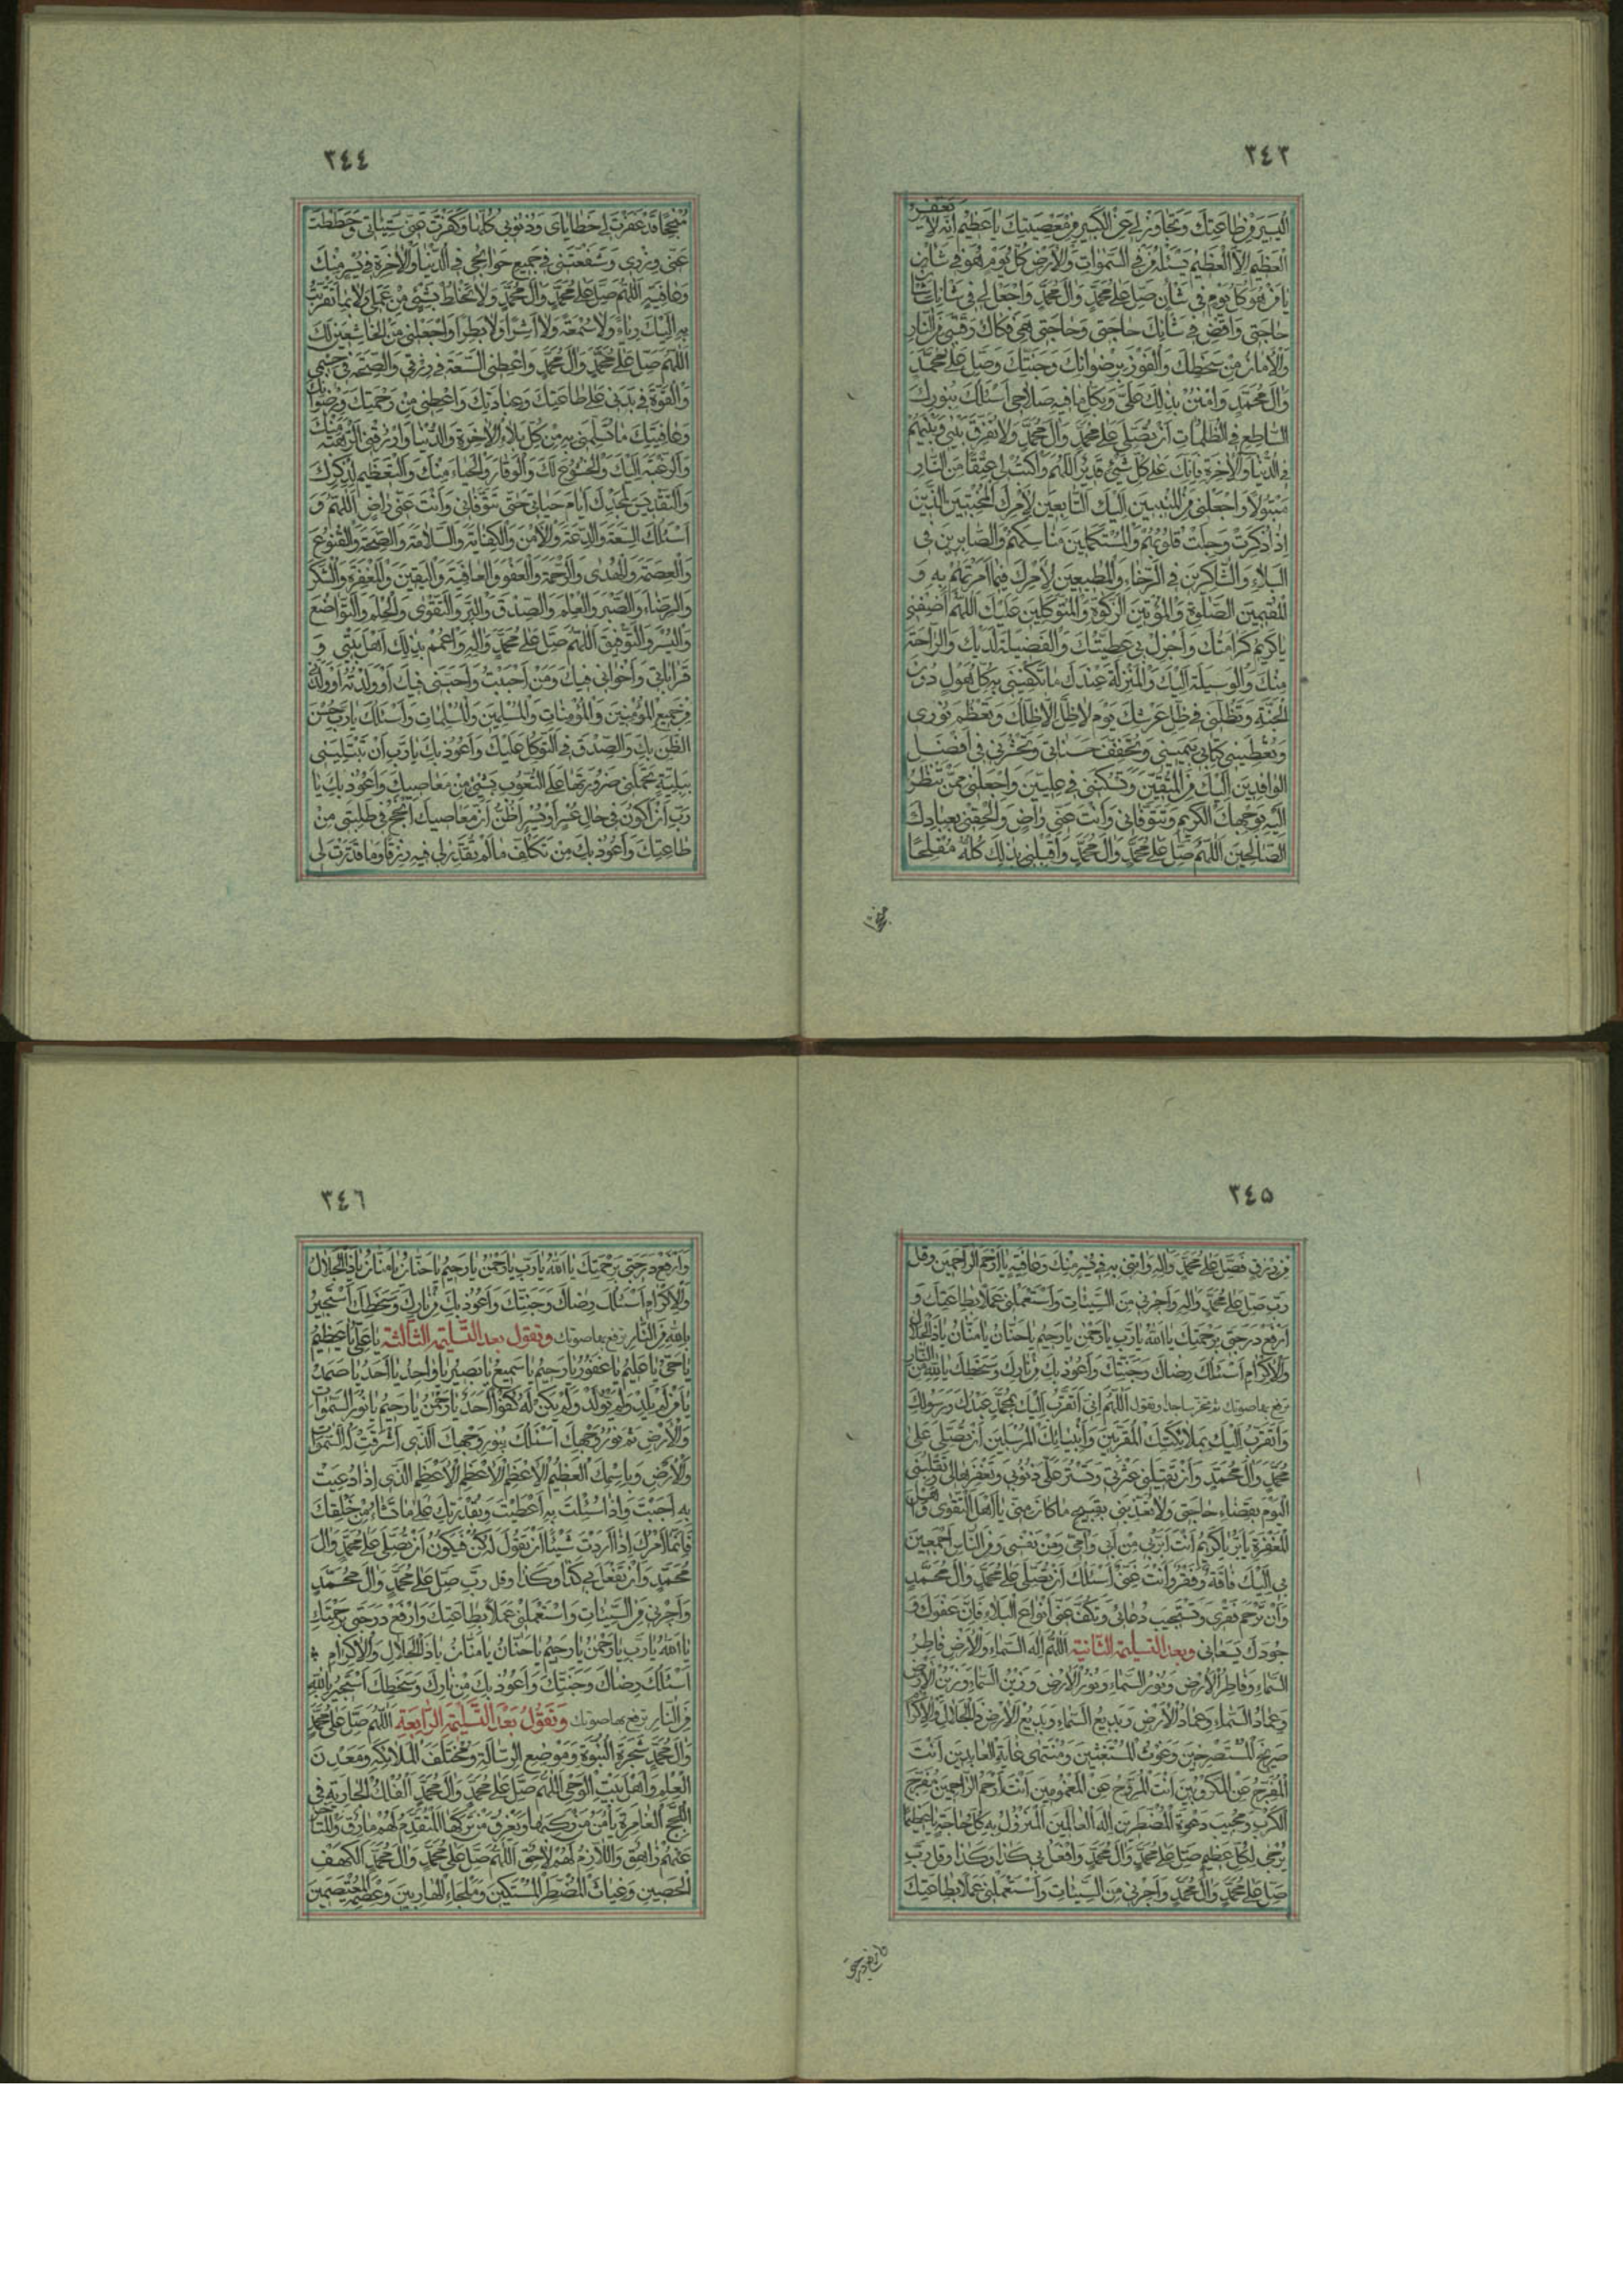 ٣٤٣
اليسير من طاعتك وتجاوز لي عن الكبير من معصيتك يا عظيم انه لا يغفر
العظيم الا العظيم يسئله من في السموات والارض كل يوم هو في شأن
يا من هو كل يوم في شأن صل على محمد وال محمد واجعل لي في شأنك شأن
حاجتي واقض في شأنك حاجتي وحاجتي هي فكاك رقبتي من النار
والامان من سخطك والفوز برضوانك وجنتك وصل على محمد
وال محمد وامنن بذلك علي وبكل ما فيه صلاحي اسئلك بنورك
الساطع في الظلمات ان تصلي على محمد وال محمد ولا تفرق بيني وبينهم
في الدنيا والاخرة انك على كل شيء قدير اللهم واكتب لي عتقا من النار
مبتولا واجعلني من المنيبين اليك التابعين لامرك المخبتين الذين
اذا ذكرت وجلت قلوبهم والمستكملين مناسكهم والصابرين في
البلاء والشاكرين في الرخاء والمطيعين لامرك فيما امرتهم به و
المقيمين الصلوة والمؤتين الزكوة والمتوكلين عليك اللهم اضفني
يا كريم كرامتك واجزل لي عطيتك والفضيلة لديك والراحة
منك والوسيلة اليك والمنزلة عندك ما تكفيني به كل هول دون
الجنة وتظلني في ظل عرشك يوم لا ظل الا ظلك وتعظم نوري
وتعطيني كتابي بيميني وتخفف حسناتي وتحشرني في افضل
الوافدين اليك من المتقين وتسكنني في عليين واجعلني ممن تنظر
اليه بوجهك الكريم وتتوفاني وانت عني راض والحقني بعبادك
الصالحين اللهم صل على محمد وال محمد واقلبني بذلك كله مفلحا
منجحا
٣٤٤
منجحا قد غفرت لي خطاياي وذنوبي كلها وكفرت عني سيئاتي وحططت
عني وزري وشفعتني في جميع حوائجي في الدنيا والاخرة في يسر منك
وعافية اللهم صل على محمد وال محمد ولا تخلط بشيء من عملي ولا بما تقربت
به اليك رياء ولا سمعة ولا اشرا ولا بطرا واجعلني من الخاشعين لك
اللهم صل على محمد وال محمد واعطني السعة في رزقي والصحة في جسمي
والقوة في بدني على طاعتك وعبادتك واعطني من رحمتك ورضوانك
وعافيتك ما تسلمني به من كل بلاء الاخرة والدنيا وارزقني الرهبة منك
والرغبة اليك والخشوع لك والوقار والحياء منك والتعظيم لذكرك
والتقديس لمجدك ايام حياتي حتى تتوفاني وانت عني راض اللهم و
اسئلك السعة والدعة والامن والكفاية والسلامة والصحة والقنوع
والعصمة والهدى والرحمة والعفو والعافية واليقين والمغفرة والشكر
والرضاء والصبر والعلم والصدق والبر والتقوى والحلم والتواضع
واليسر والتوفيق اللهم صل على محمد واله واعمم بذلك اهل بيتي و
قراباتي واخواني فيك ومن احببت واحبني فيك او ولدته او ولدني
من جميع المؤمنين والمؤمنات والمسلمين والمسلمات واسئلك يا رب حسن
الظن بك والصدق في التوكل عليك واعوذ بك يا رب ان تبتليني
ببلية تحملني ضرورتها على التغوث بشيء من معاصيك واعوذ بك يا
رب ان اكون في حال عسر او يسر اظن ان معاصيك انجح في طلبتي من
طاعتك واعوذ بك من تكلف ما لم تقدر لي فيه رزقا وما قدرت لي
٣٤٥
من رزق فصل على محمد واله واتني به في يسر منك وعافية يا ارحم الراحمين وقل
رب صل على محمد واله واجرني من السيئات واستعملني عملا بطاعتك و
ارفع درجتي برحمتك يا الله يا رب يا رحمن يا رحيم يا حنان يا منان يا ذا الجلال
والاكرام اسئلك رضاك وجنتك واعوذ بك من نارك وسخطك بالله من النار
ترفع بها صوتك ثم تخر ساجدا وتقول اللهم اني اتقرب اليك بمحمد عبدك ورسولك
واتقرب اليك بملائكتك المقربين وانبيائك المرسلين ان تصلي على
محمد وال محمد وان تقيلني عثرتي وتستر علي ذنوبي وتغفرها لي وتقلبني
اليوم بقضاء حاجتي ولا تعذبني بقبيح ما كان مني يا اهل التقوى واهل
المغفرة يا بر يا كريم انت ابر بي من ابي وامي ومن نفسي ومن الناس اجمعين
بي اليك فاقة وفقر وانت غني اسئلك ان تصلي على محمد وال محمد
وان ترحم فقري وتستجيب دعائي وتكف عني انواع البلاء فان عفوك و
جودك يسعاني وبعد التسليمة الثانية اللهم اله السماء والارض فاطر
السماء وفاطر الارض ونور السماء ونور الارض وزين السماء وزين الارض
وعماد السماء وعماد الارض وبديع السماء وبديع الارض ذا الجلال والاكرام
صريخ المستصرخين وغوث المستغيثين ومنتهى غاية العابدين انت
المفرج عن المكروبين انت المروح عن المغمومين انت ارحم الراحمين مفرج
الكرب ومجيب دعوة المضطرين اله العالمين المنزول به كل حاجة يا عظيما
يرجى لكل عظيم صل على محمد وال محمد وافعل بي كذا وكذا وقل رب
صل على محمد وال محمد واجرني من السيئات واستعملني عملا بطاعتك
وارفع درجتي
٣٤٦
وارفع درجتي برحمتك يا الله يا رب يا رحمن يا رحيم يا حنان يا منان يا ذا الجلال
والاكرام اسئلك رضاك وجنتك واعوذ بك من نارك وسخطك استجير
بالله من النار ترفع بها صوتك وتقول بعد التسليمة الثالثة يا علي يا عظيم
يا حي يا عليم يا غفور يا رحيم يا سميع يا بصير يا واحد يا احد يا صمد
يا من لم يلد ولم يولد ولم يكن له كفوا احد يا رحمن يا رحيم يا نور السموات
والارض تم نور وجهك اسئلك بنور وجهك الذي اشرقت له السموات
والارض وباسمك العظيم الاعظم الاعظم الاعظم الذي اذا دعيت
به اجبت واذا سئلت به اعطيت وبقدرتك على ما تشاء من خلقك
فانما امرك اذا اردت شيئا ان تقول له كن فيكون ان تصلي على محمد وال
محمد وان تفعل بي كذا وكذا وقل رب صل على محمد وال محمد
واجرني من السيئات واستعملني عملا بطاعتك وارفع درجتي برحمتك
يا الله يا رب يا رحمن يا رحيم يا حنان يا منان يا ذا الجلال والاكرام
اسئلك رضاك وجنتك واعوذ بك من نارك وسخطك استجير بالله
من النار ترفع بها صوتك وتقول بعد التسليمة الرابعة اللهم صل على محمد
وال محمد شجرة النبوة وموضع الرسالة ومختلف الملائكة ومعدن
العلم واهل بيت الوحي اللهم صل على محمد وال محمد الفلك الجارية في
اللجج الغامرة يأمن من ركبها ويغرق من تركها المتقدم لهم مارق والمتأخر
عنهم زاهق واللازم لهم لاحق اللهم صل على محمد وال محمد الكهف
الحصين وغياث المضطر المستكين وملجاء الهاربين وعصمة المعتصمين